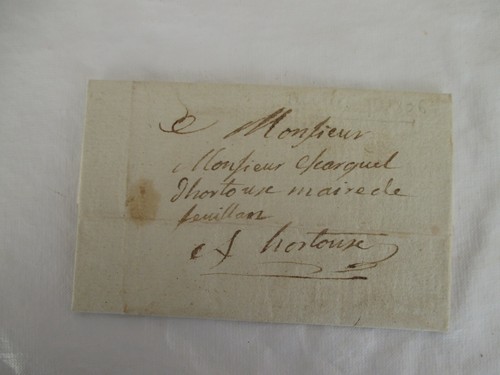 Monsieur
Monsieur Escarguel
d'hortouse maire de
feuillan
A hortouse